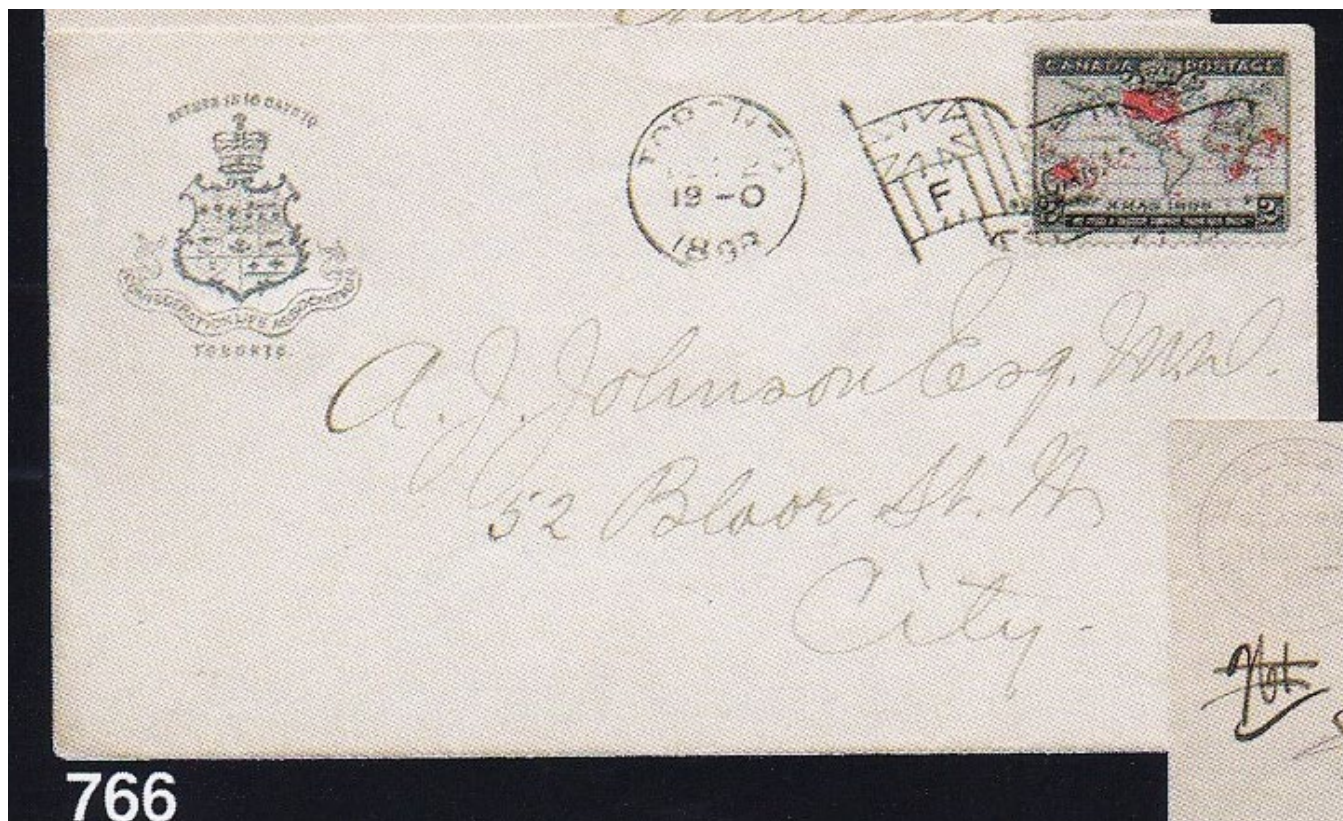 RETURN IN 10 DAYS TO
CONFEDERATION LIFE ASSOCIATION
TORONTO.
19 -0
F
CANADA POSTAGE
XMAS 1898
2 2
A. J. Johnson Esq. M.D.
52 Bloor St. W
City -
Not
766